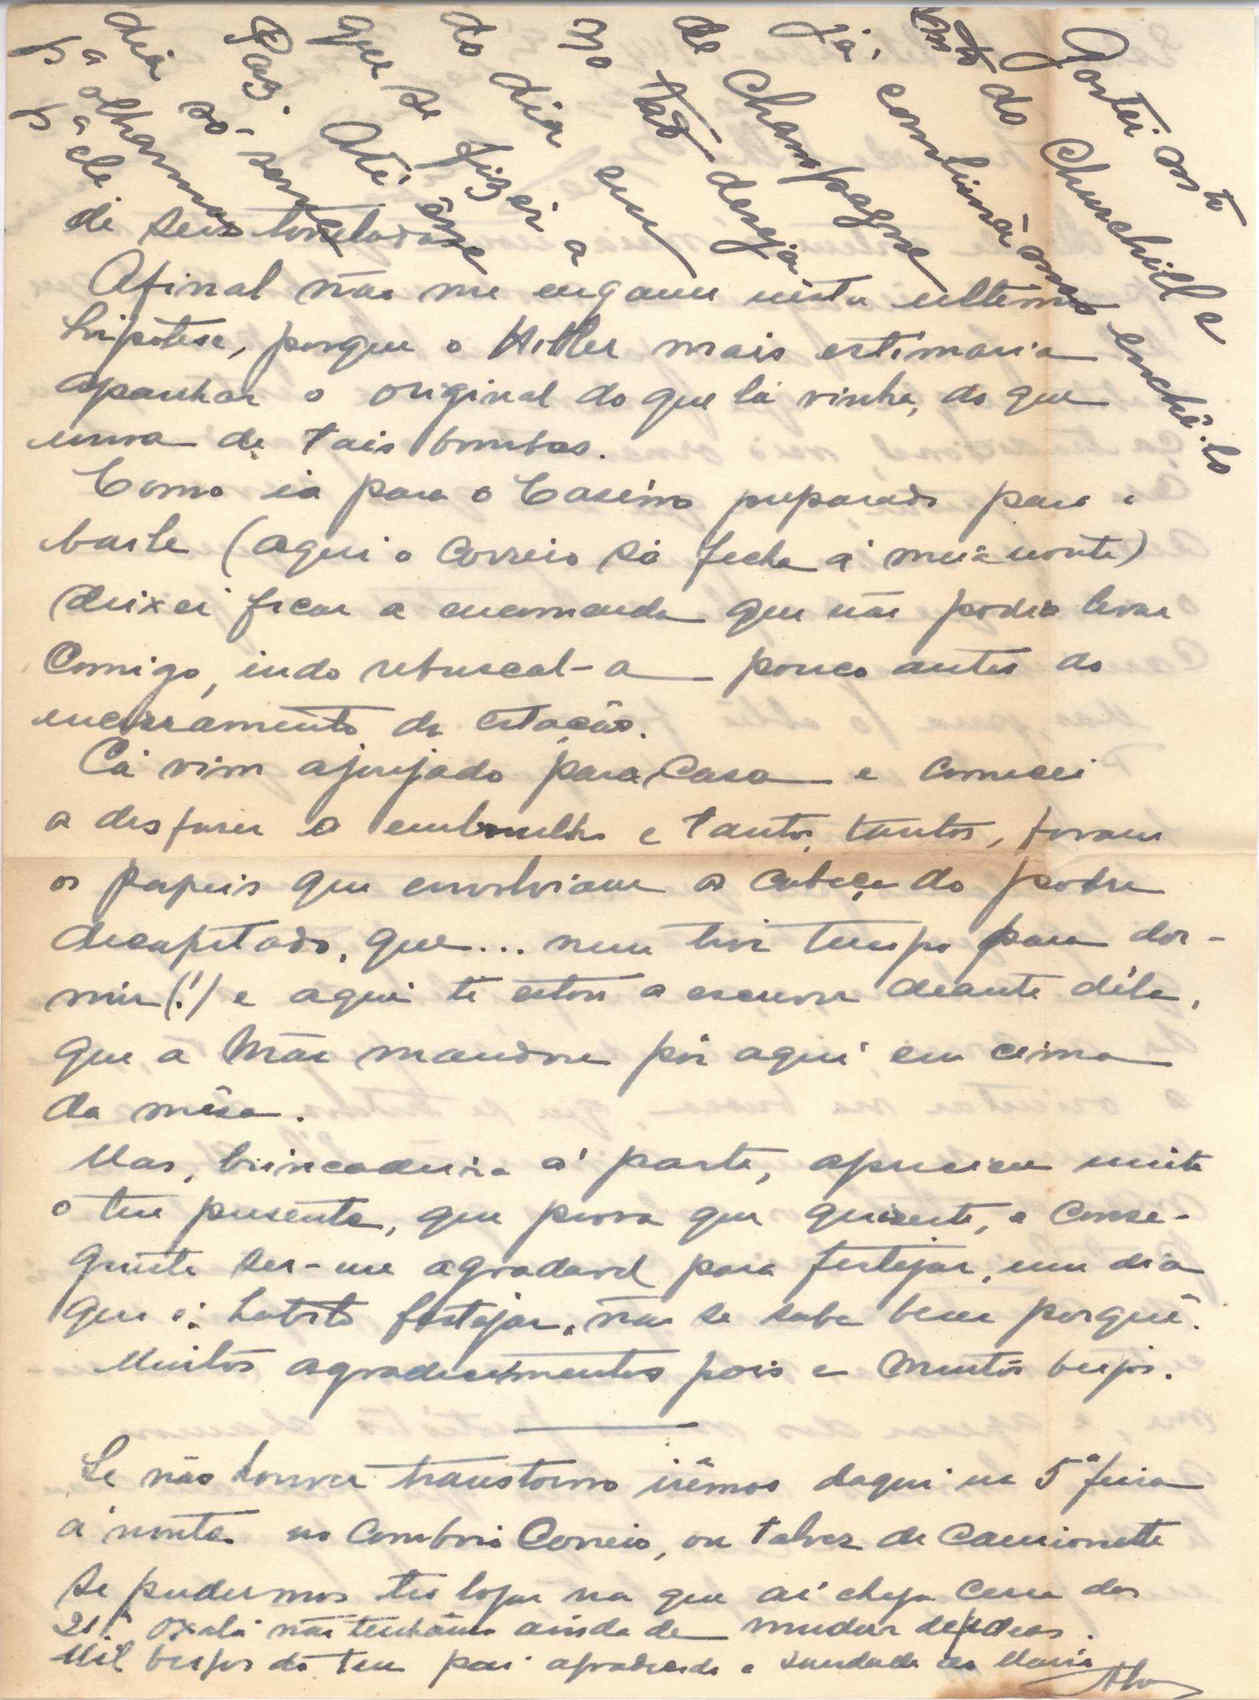 de seis toneladas.
Afinal não me enganei nesta ultima
hipótese, porque o Hitler mais estimaria
apanhar o original do que lá vinha, do que
uma de tais bombas.
Como ia para o Casino preparado para o
baile (aqui o correio só fecha á meia noute)
deixei ficar a encomenda que não podia levar
comigo, indo rebuscal-a pouco antes do
encerramento da estação.
Cá vim ajoujado para casa e comecei
a desfazer o embrulho e tantos, tantos, foram
os papeis que envolviam a cabeça do pobre
decapitado, que... nem tive tempo para dor-
mir (!) e aqui te estou a escrever deante déle,
que a Mãe mandou pôr aqui em cima
da mêsa.
Mas, brincadeira á parte, apreciei muito
o teu presente, que prova que quizeste, e conse-
guiste ser-me agradavel para festejar, um dia
que é habito festejar, não se sabe bem porquê.
Muitos agradecimentos pois e muitos beijos.
Se não houver transtorno irêmos daqui na 5ª feira
á noute no comboio Correio, ou talvez de camionette
se pudermos ter logar na que aí chega cerca das
21h. Oxalá não tenhâmos ainda de mudar de ideas.
Mil beijos do teu pai agradecido e saudades da Maria
Gostei muito do Churchill e
já combinámos enchê-lo
de champagne
no tão desejado
dia em
que se fizer a
Paz. Até esse
dia só serve
p.a olharmos
p.a ele